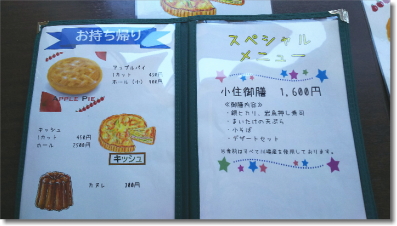 お持ち帰り
アップルパイ
1カット 450円
ホール(小) 900円
APPLE PIE
キッシュ
1カット 450円
ホール 2500円
キッシュ
カヌレ 300円
スペシャル
メニュー
小住御膳 1,600円
<御膳内容>
・銀ヒカリ、岩魚押し寿司
・まいたけの天ぷら
・小そば
・デザートセット